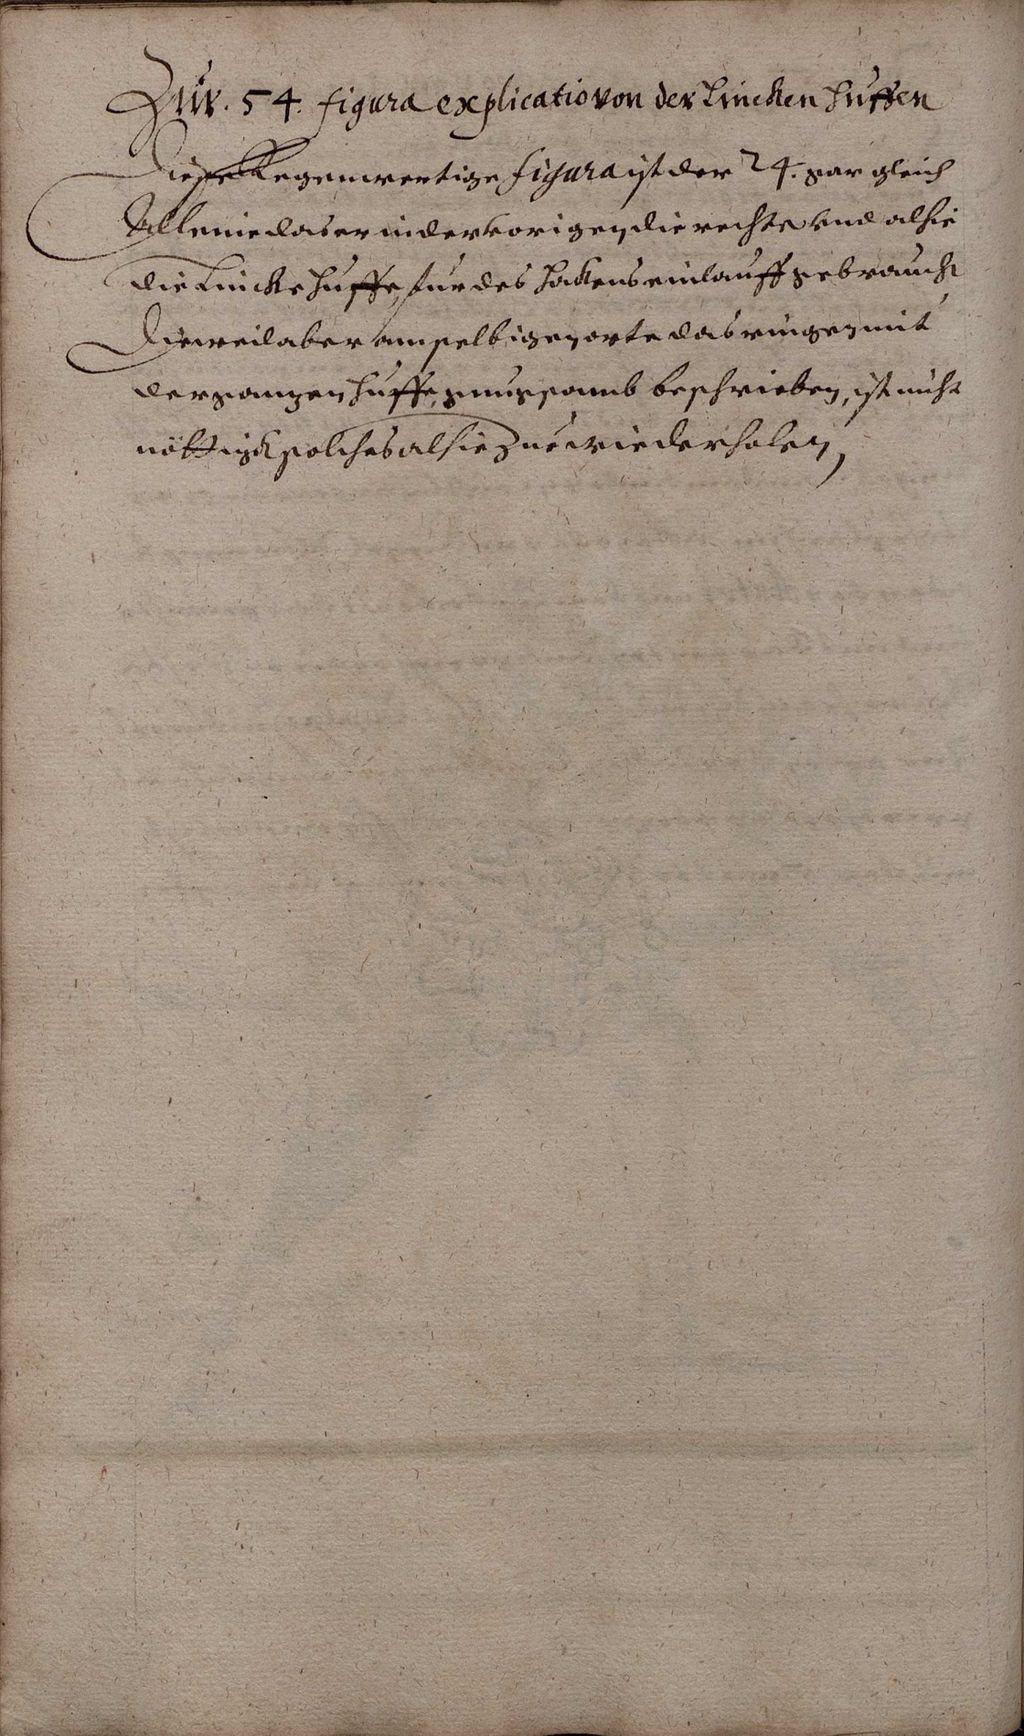 Zur. 54. figura explicatio von der Lincken Huffen
Diese kegenwertige figura ist der 24. gar gleich
Alleine das er in der vorigen die rechte vnd alhie
die Lincke Huffe, fur des Hackens einlauff gebraucht
Dieweil aber am selbigen orte das ringen mit
der gantzen Huffe, beschrieben, ist nicht
nöttigk solches alhie zue wiederholen,